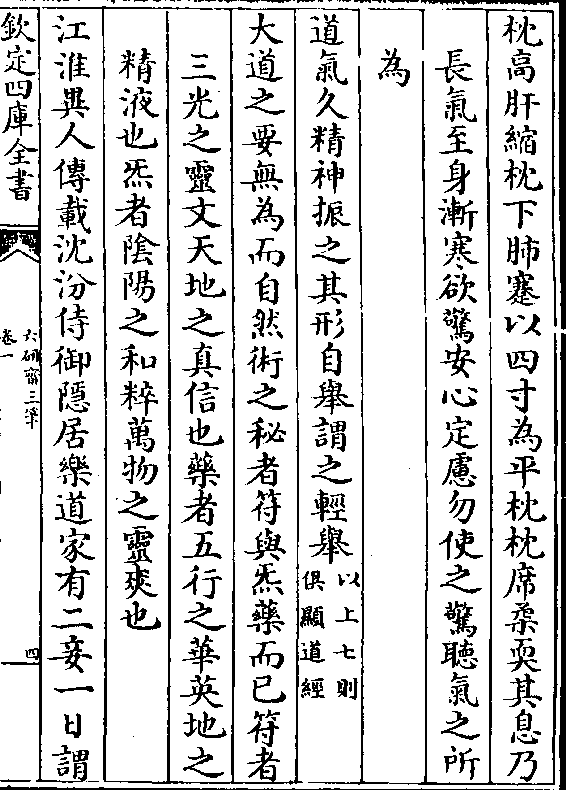 枕高肝縮枕下肺蹇以四寸為平枕枕席柔耎其息乃
長氣至身漸寒欲驚安心定慮勿使之驚聽氣之所
為
道氣久精神振之其形自舉謂之輕舉以上七則
俱顯道經
大道之要無為而自然術之秘者符與炁藥而已符者
三光之靈文天地之真信也藥者五行之華英地之
精液也炁者陰陽之和粹萬物之靈爽也
江淮異人傳載沈汾侍御隱居樂道家有二妾一日謂
欽定四庫全書
六研齋三筆
卷一
四